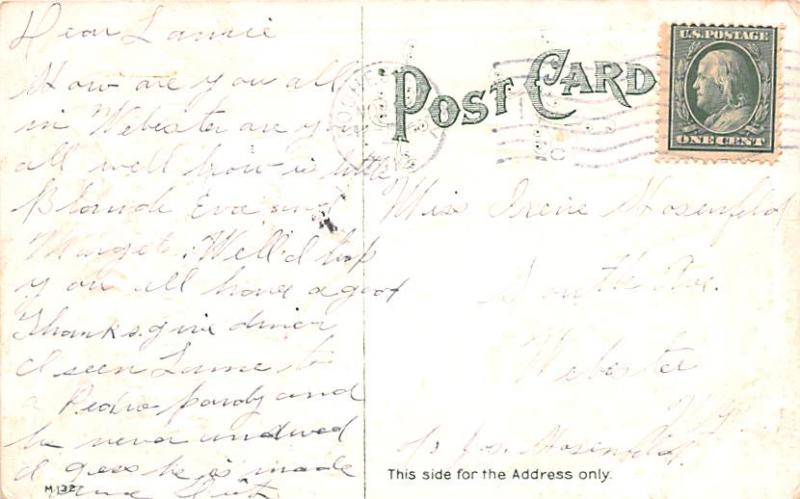 Dear Lannie
How are you all
in Webester are you
all well how is little
Blande Eva and
Marget. Well I hop
you all have a goot
Thanks.give diner
I seen Lame to
a Pedro pardy and
he never
I gess he is made
and
M.132
POST CARD
U.S. POSTAGE
ONE CENT
Miss Irene Hosenfeld
South Ave.
Webester
N.Y.
c/o Jos. Hosenfeld.
This side for the Address only.